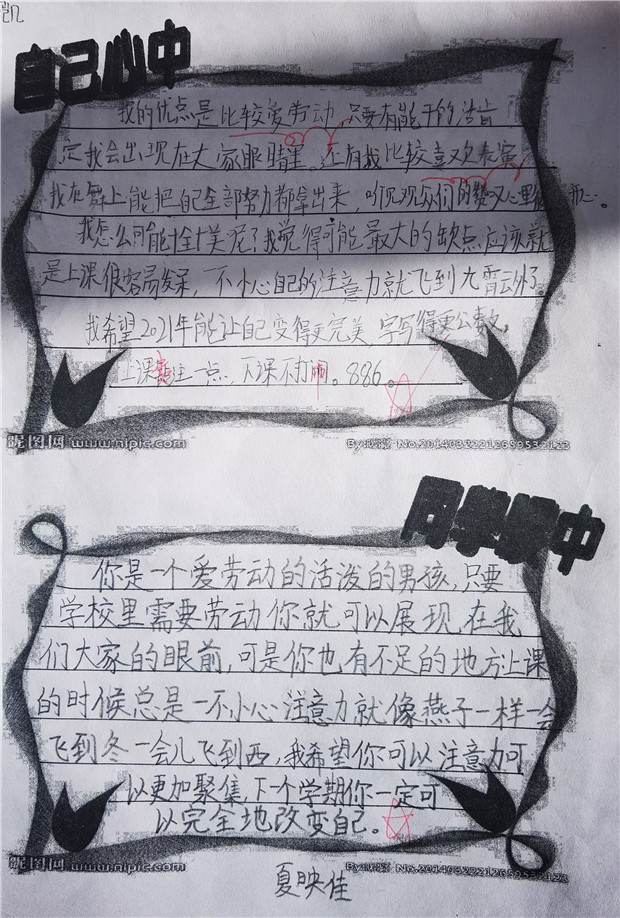 自己心中
我的优点是比较爱劳动,只要有能干的活肯
定我会出现在大家眼睛里。还有我比较喜欢表演
我在舞上能把自己全部努力都拿出来,听见观众们的赞叹心里很开心。
我怎么可能十全十美呢?我觉得可能最大的缺点应该就
是上课很容易发呆,不小心自己的注意力就飞到九霄云外了。
我希望2021年能让自己变得更完美,字写得更公整,
上课专注一点,下课不打闹。886。
昵图网 www.nipic.com
No.20140322212659532123
同学眼中
你是一个爱劳动的活泼的男孩,只要
学校里需要劳动你就可以展现在我
们大家的眼前,可是你也有不足的地方上课
的时候总是一不小心注意力就像燕子一样一会
飞到冬一会儿飞到西,我希望你可以注意力可
以更加聚集,下个学期你一定可
以完全地改变自己。
昵图网 www.nipic.com
No.20140322212659532123
夏映佳